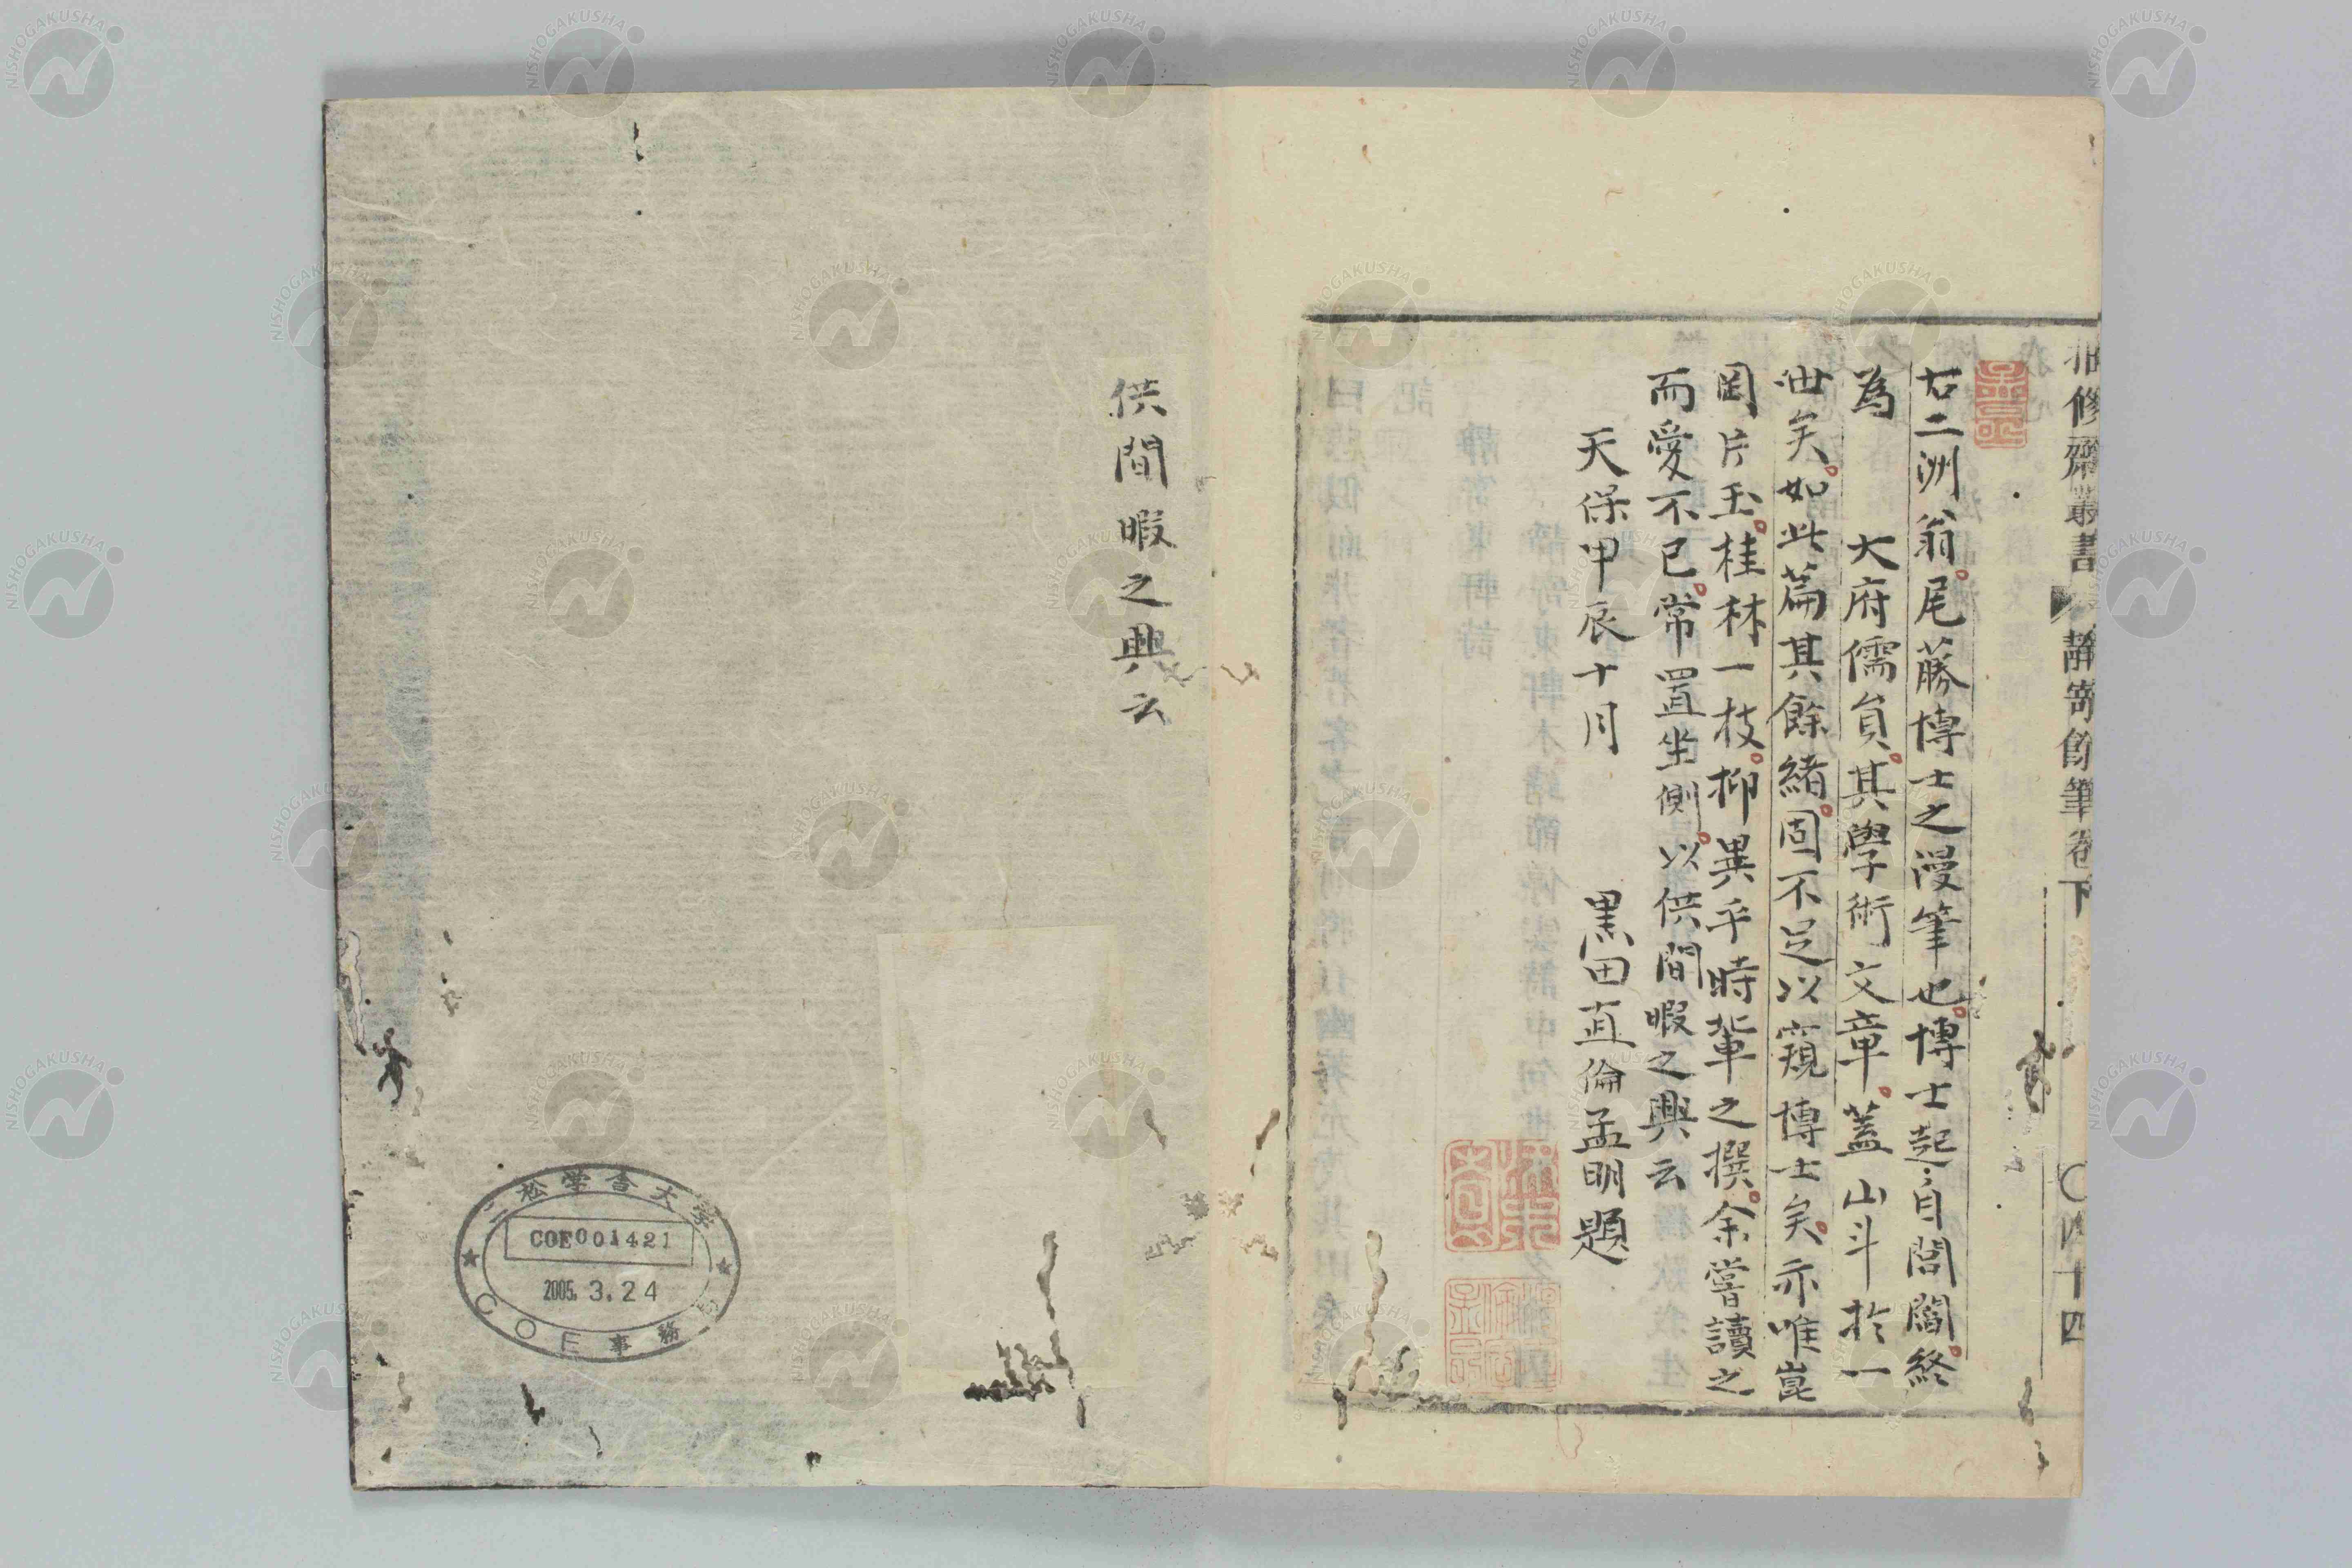 甘雨亭叢書
靜寄餘筆卷下
四十四
右二洲翁尾藤博士之漫筆也博士起自閭閻終
為　　大府儒員其學術文章蓋山斗於一
世矣如此篇其餘緒固不足以窺博士矣亦唯崑
岡片玉桂林一枝抑異乎時輩之撰余嘗讀之
而愛不已常置坐側以供間暇之興云
天保甲辰十月　　黒田直倫孟明題
供間暇之興云
二松学舎大学
COE001421
2005. 3. 24
COE事務
NISHOGAKUSHA